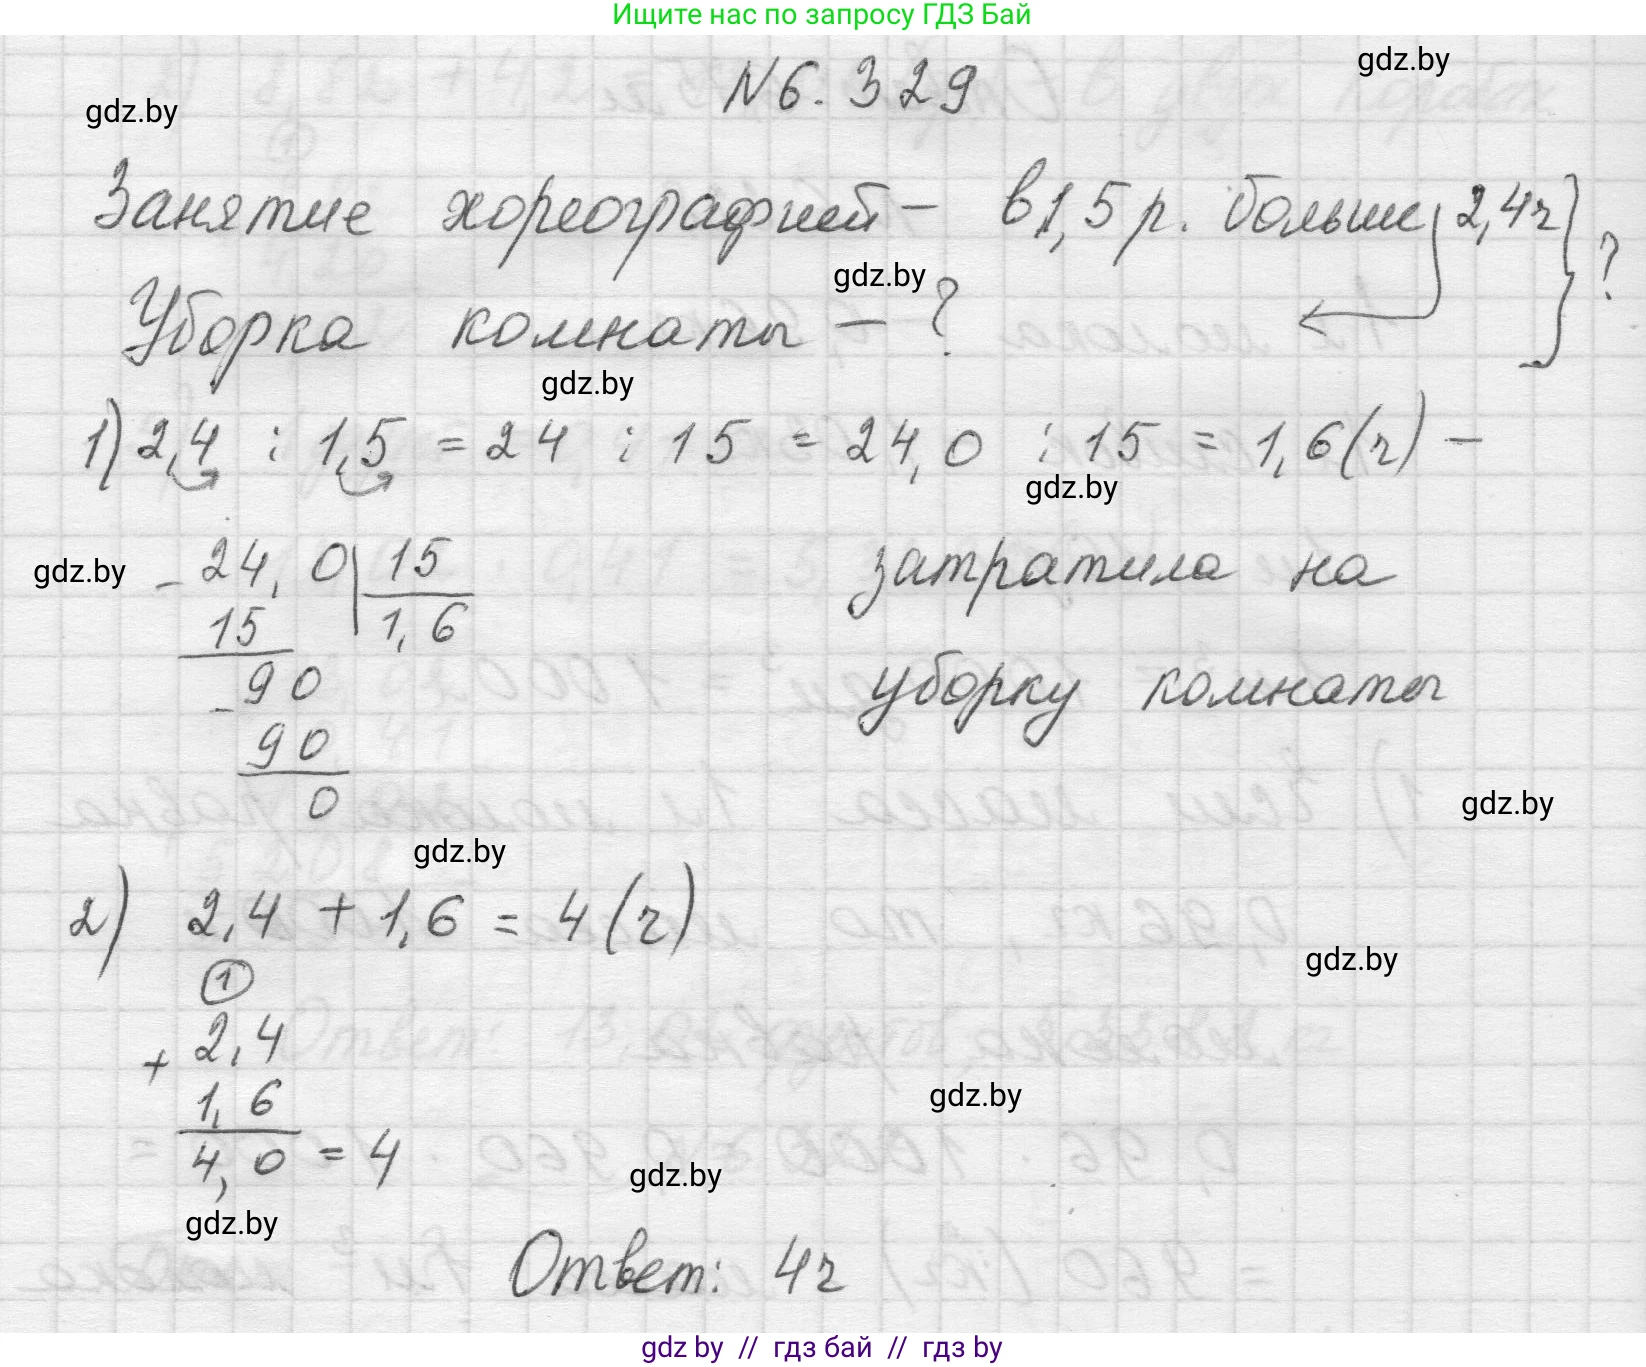 Ищите нас по запросу ГДЗ Бай
№6.329
gdz.by
gdz.by
Занятие хореографией – в 1,5 р. больше, 2,4ч } ?
gdz.by
Уборка комнаты – ?
gdz.by
1) 2,4 : 1,5 = 24 : 15 = 24,0 : 15 = 1,6 (ч) –
gdz.by
затратила на
уборку комнаты
gdz.by
- 24,0 | 15
15 1,6
- 90
90
0
gdz.by
gdz.by
2) 2,4 + 1,6 = 4 (ч)
gdz.by
1
+ 2,4
1,6
4,0 = 4
gdz.by
gdz.by
gdz.by
Ответ: 4ч
gdz.by // гдз бай // гдз by